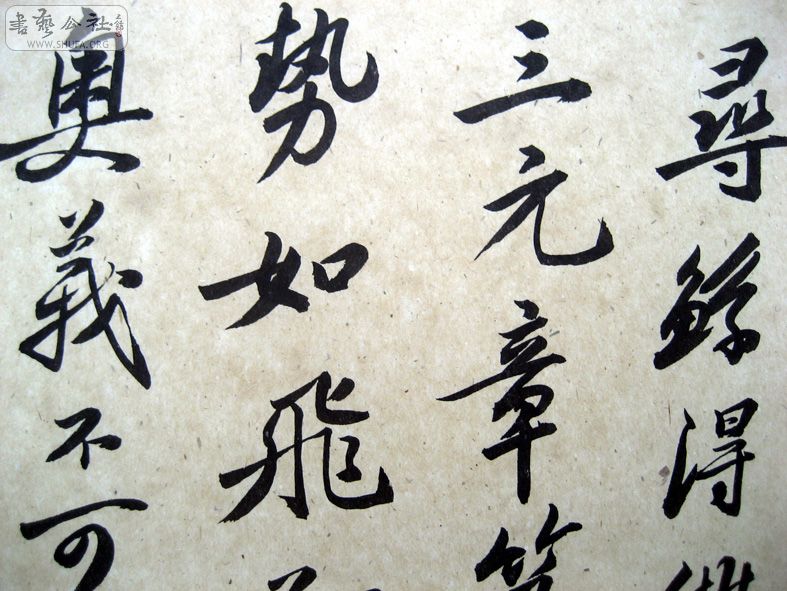 書藝公社
WWW.SHUFA.ORG
尋鯀得
三元章
勢如飛
奥義不可